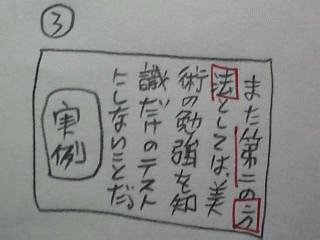 ③
また第二の方
法としては、美
術の勉強を知
識だけのテスト
にしないことだ。
実例